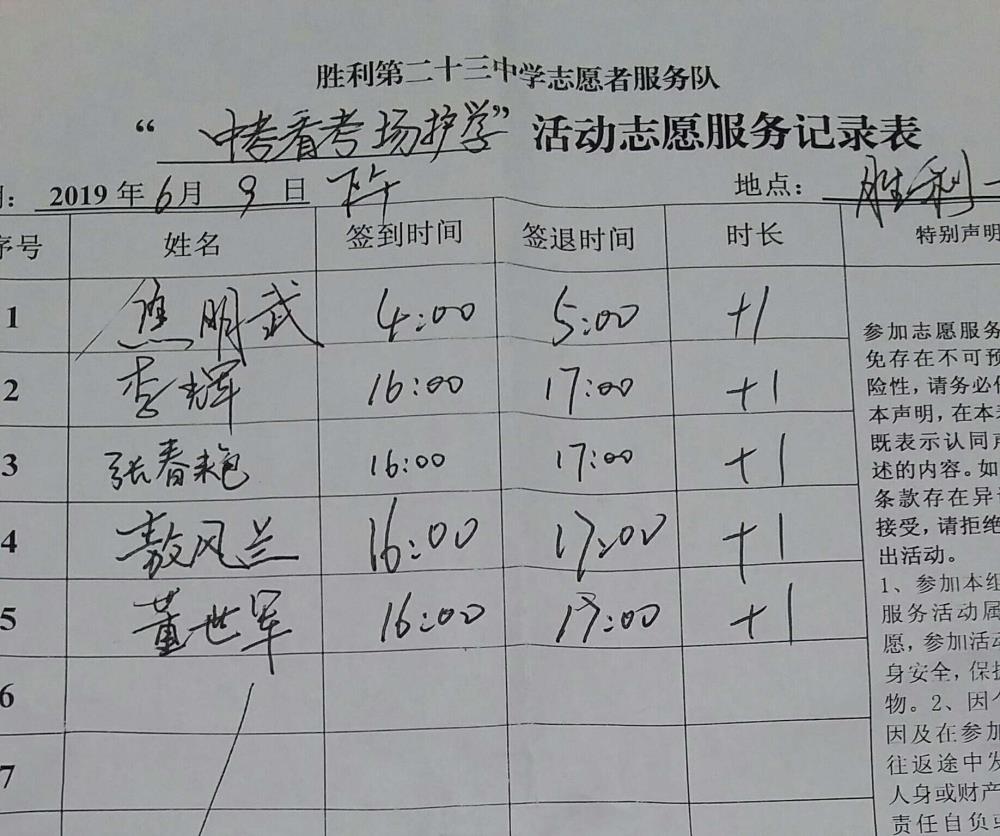 胜利第二十三中学志愿者服务队
“中考看考场护学”活动志愿服务记录表
期: 2019年6月9日 下午 地点: 胜利一
序号 姓名 签到时间 签退时间 时长 特别声明
1 焦明武 4:00 5:00 +1
2 李辉 16:00 17:00 +1
3 张春艳 16:00 17:00 +1
4 敖风兰 16:00 17:00 +1
5 董世军 16:00 17:00 +1
6
7
参加志愿服务
免存在不可预
险性,请务必仔
本声明,在本表
既表示认同声
述的内容。如
条款存在异议
接受,请拒绝
出活动。
1、参加本组
服务活动属
愿,参加活动
身安全,保护
物。2、因个
因及在参加
往返途中发
人身或财产
责任自负或